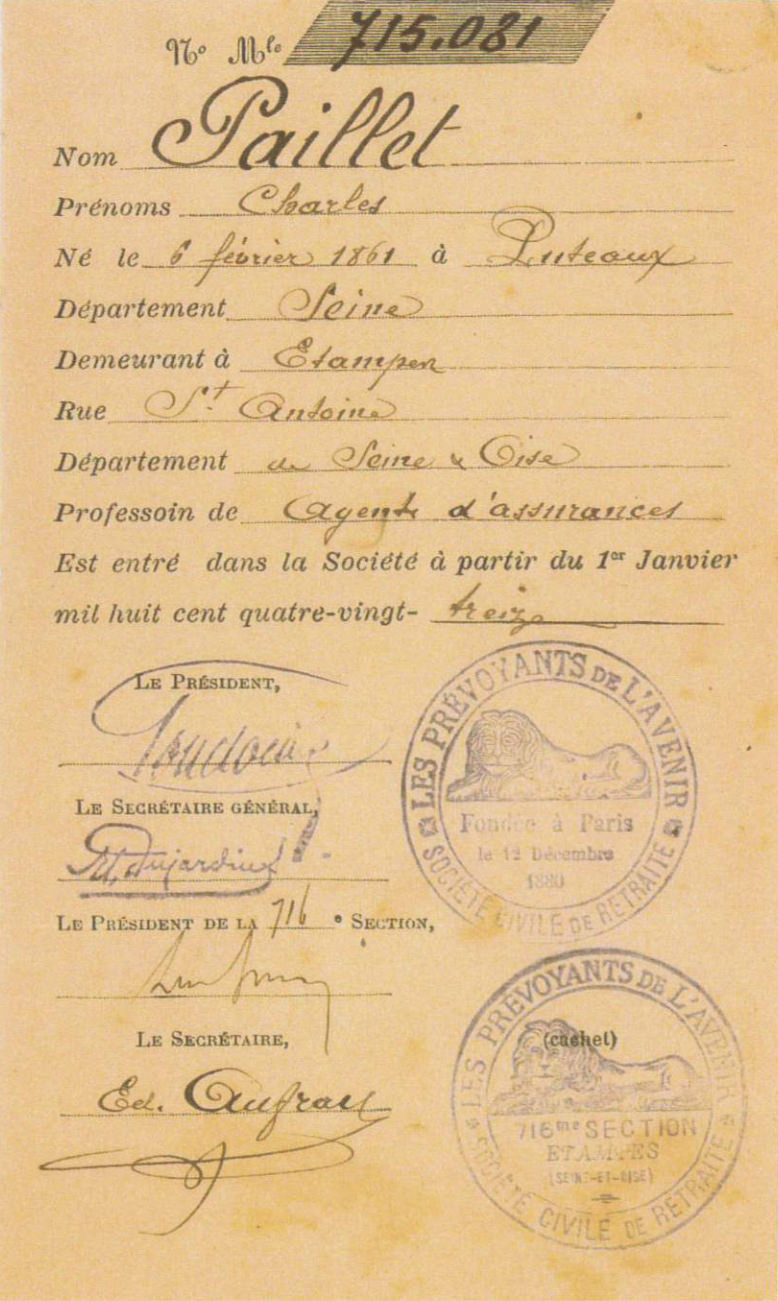 No Mle 715.081
Nom Paillet
Prénoms Charles
Né le 6 février 1861 à Puteaux
Département Seine
Demeurant à Etampes
Rue St Antoine
Département de Seine & Oise
Professoin de Agent d'assurances
Est entré dans la Société à partir du 1er Janvier
mil huit cent quatre-vingt- treize
LE PRÉSIDENT,
LES PRÉVOYANTS DE L'AVENIR
Fondée à Paris
le 12 Décembre
1880
SOCIÉTÉ CIVILE DE RETRAITE
LE SECRÉTAIRE GÉNÉRAL,
Dujardin
LE PRÉSIDENT DE LA 716 e SECTION,
LE SECRÉTAIRE,
(cachet)
Ed. Aufray
LES PRÉVOYANTS DE L'AVENIR
716me SECTION
ETAMPES
(SEINE-ET-OISE)
SOCIÉTÉ CIVILE DE RETRAITE